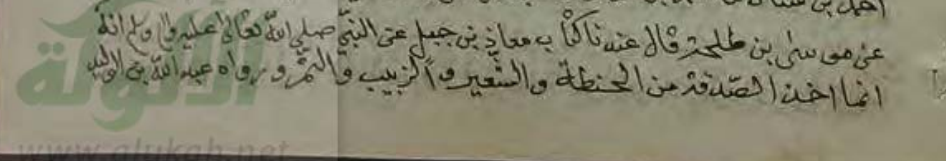 عن موسى بن طلحة قال عندنا كتاب معاذ بن جبل عن النبي صلى الله تعالى عليه وسلم انه
انما اخذ الصدقة من الحنطة والشعير والزبيب والتمر ورواه عبد الله بن الوليد
الألوكة
www.alukah.net